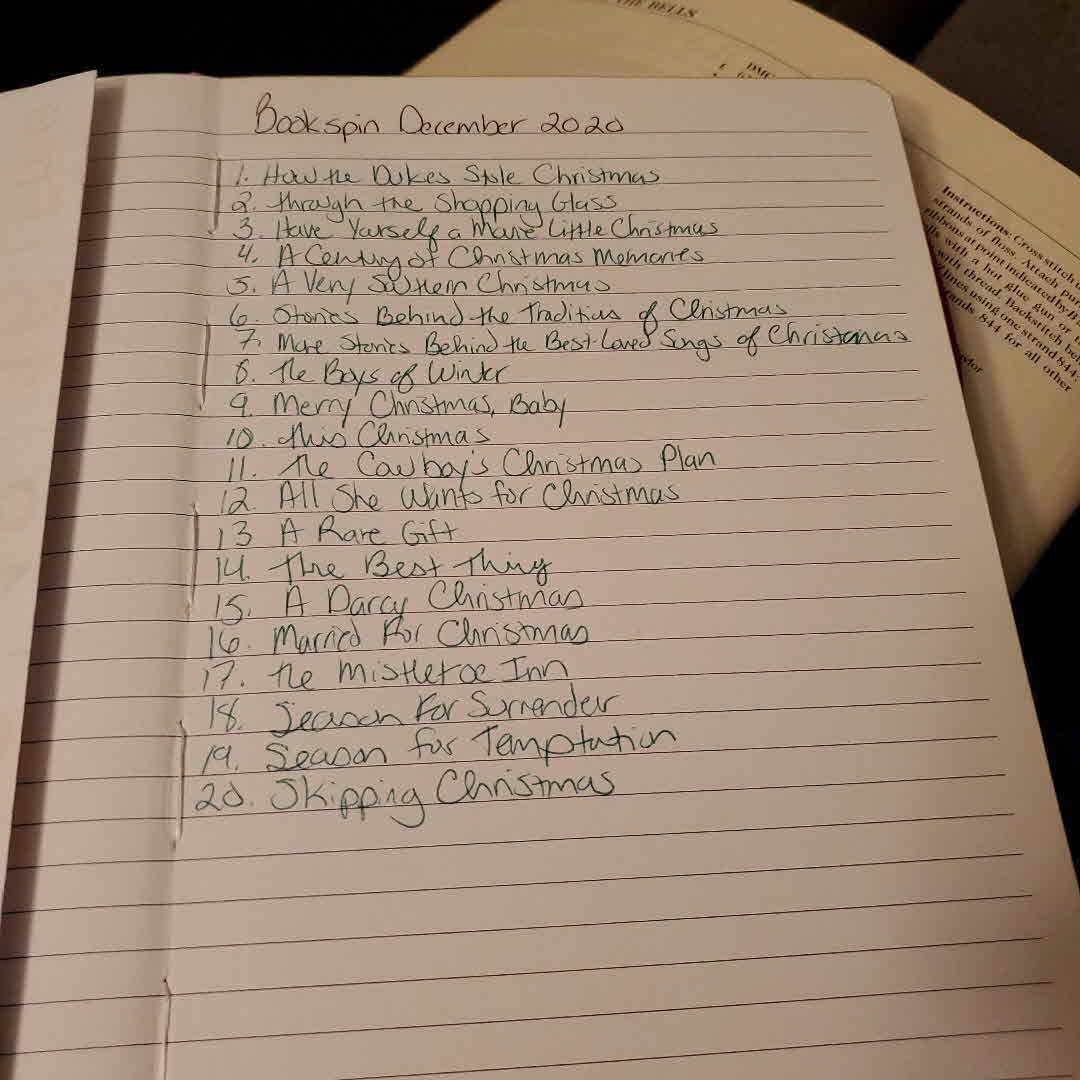 THE BELLS
DMC
Bookspin December 2020
1. How the Dukes Stole Christmas
2. Through the Shopping Glass
3. Have Yourself a Movie Little Christmas
4. A Century of Christmas Memories
5. A Very Southern Christmas
6. Stories Behind the Traditions of Christmas
7. More Stories Behind the Best-Loved Songs of Christmas
8. The Boys of Winter
9. Merry Christmas, Baby
10. This Christmas
11. The Cowboy's Christmas Plan
12. All She Wants for Christmas
13 A Rare Gift
14. The Best Thing
15. A Darcy Christmas
16. Married For Christmas
17. The Mistletoe Inn
18. Season For Surrender
19. Season for Temptation
20. Skipping Christmas
Instructions: Cross stitch
strands of floss. Attach
ribbons at point indicated by
with a hot glue gun or
with thread. Backstitch
lines using one strand 844.
844 for all other